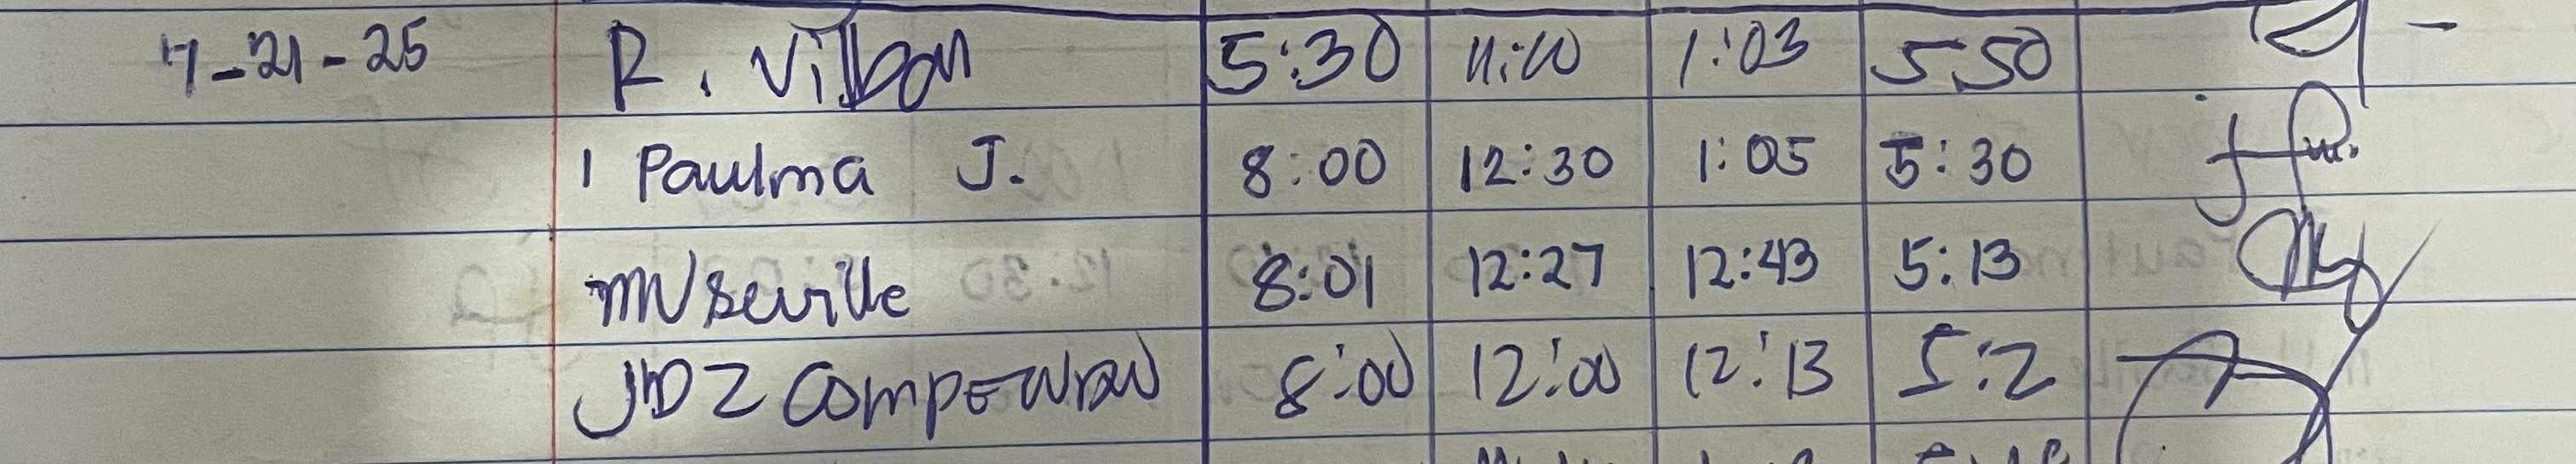 7-21-25 R. Villon 5:30 11:00 1:03 5:50
1 Paulma J. 8:00 12:30 1:05 5:30
MV Seville 8:01 12:27 12:43 5:13
JDZ 8:00 12:00 12:13 5:2